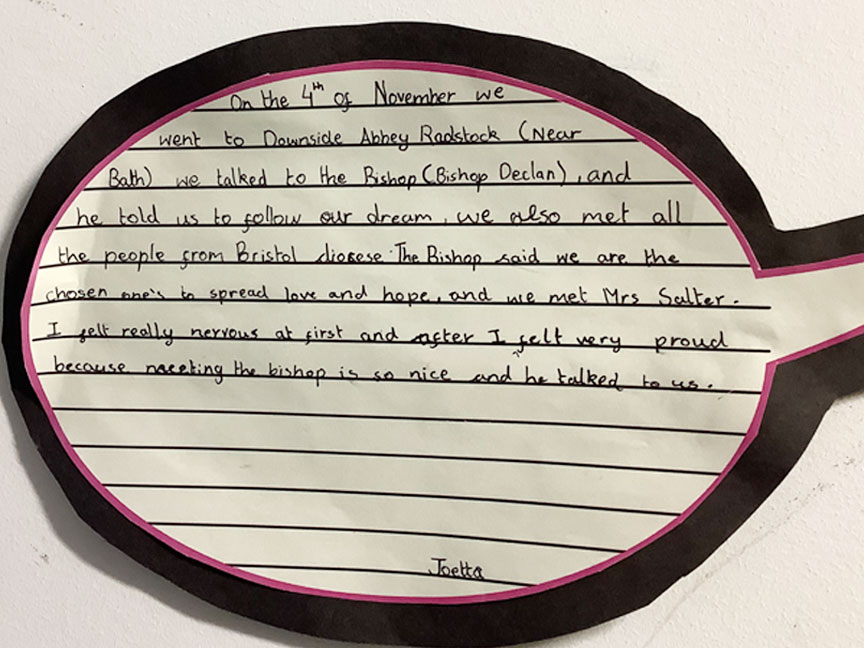 On the 4th of November we
went to Downside Abbey Radstock (Near
Bath) we talked to the Bishop (Bishop Declan), and
he told us to follow our dream, we also met all
the people from Bristol diocese. The Bishop said we are the
chosen one's to spread love and hope, and we met Mrs Salter.
I felt really nervous at first and after I felt very proud
because meeting the bishop is so nice and he talked to us.
Joetta